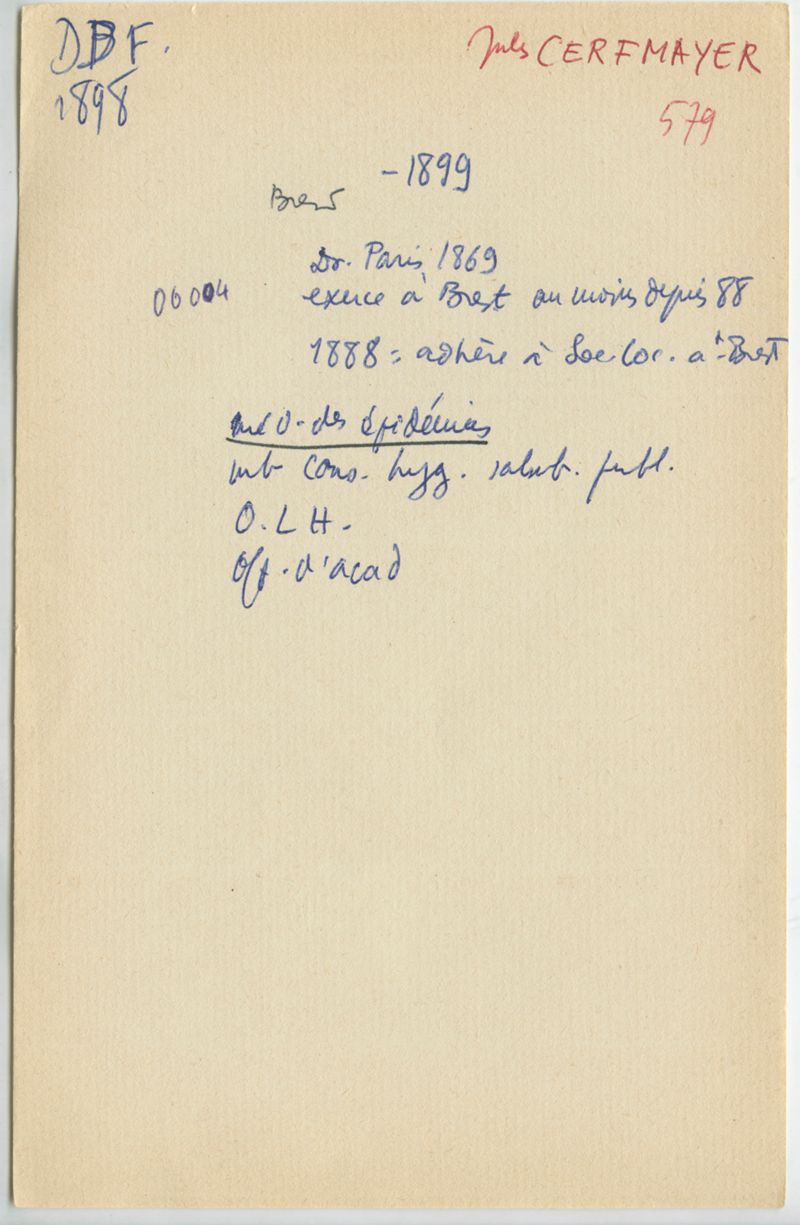 DBF.
1898
Jules CERFMAYER
579
-1899
Brest
Dr. Paris 1869
06004
exerce à Brest au moins depuis 88
1888 = adhère à Soc. loc. à Brest
méd. des épidémies
mb cons. hyg. salub. publ.
O.L.H.
Off. d'acad